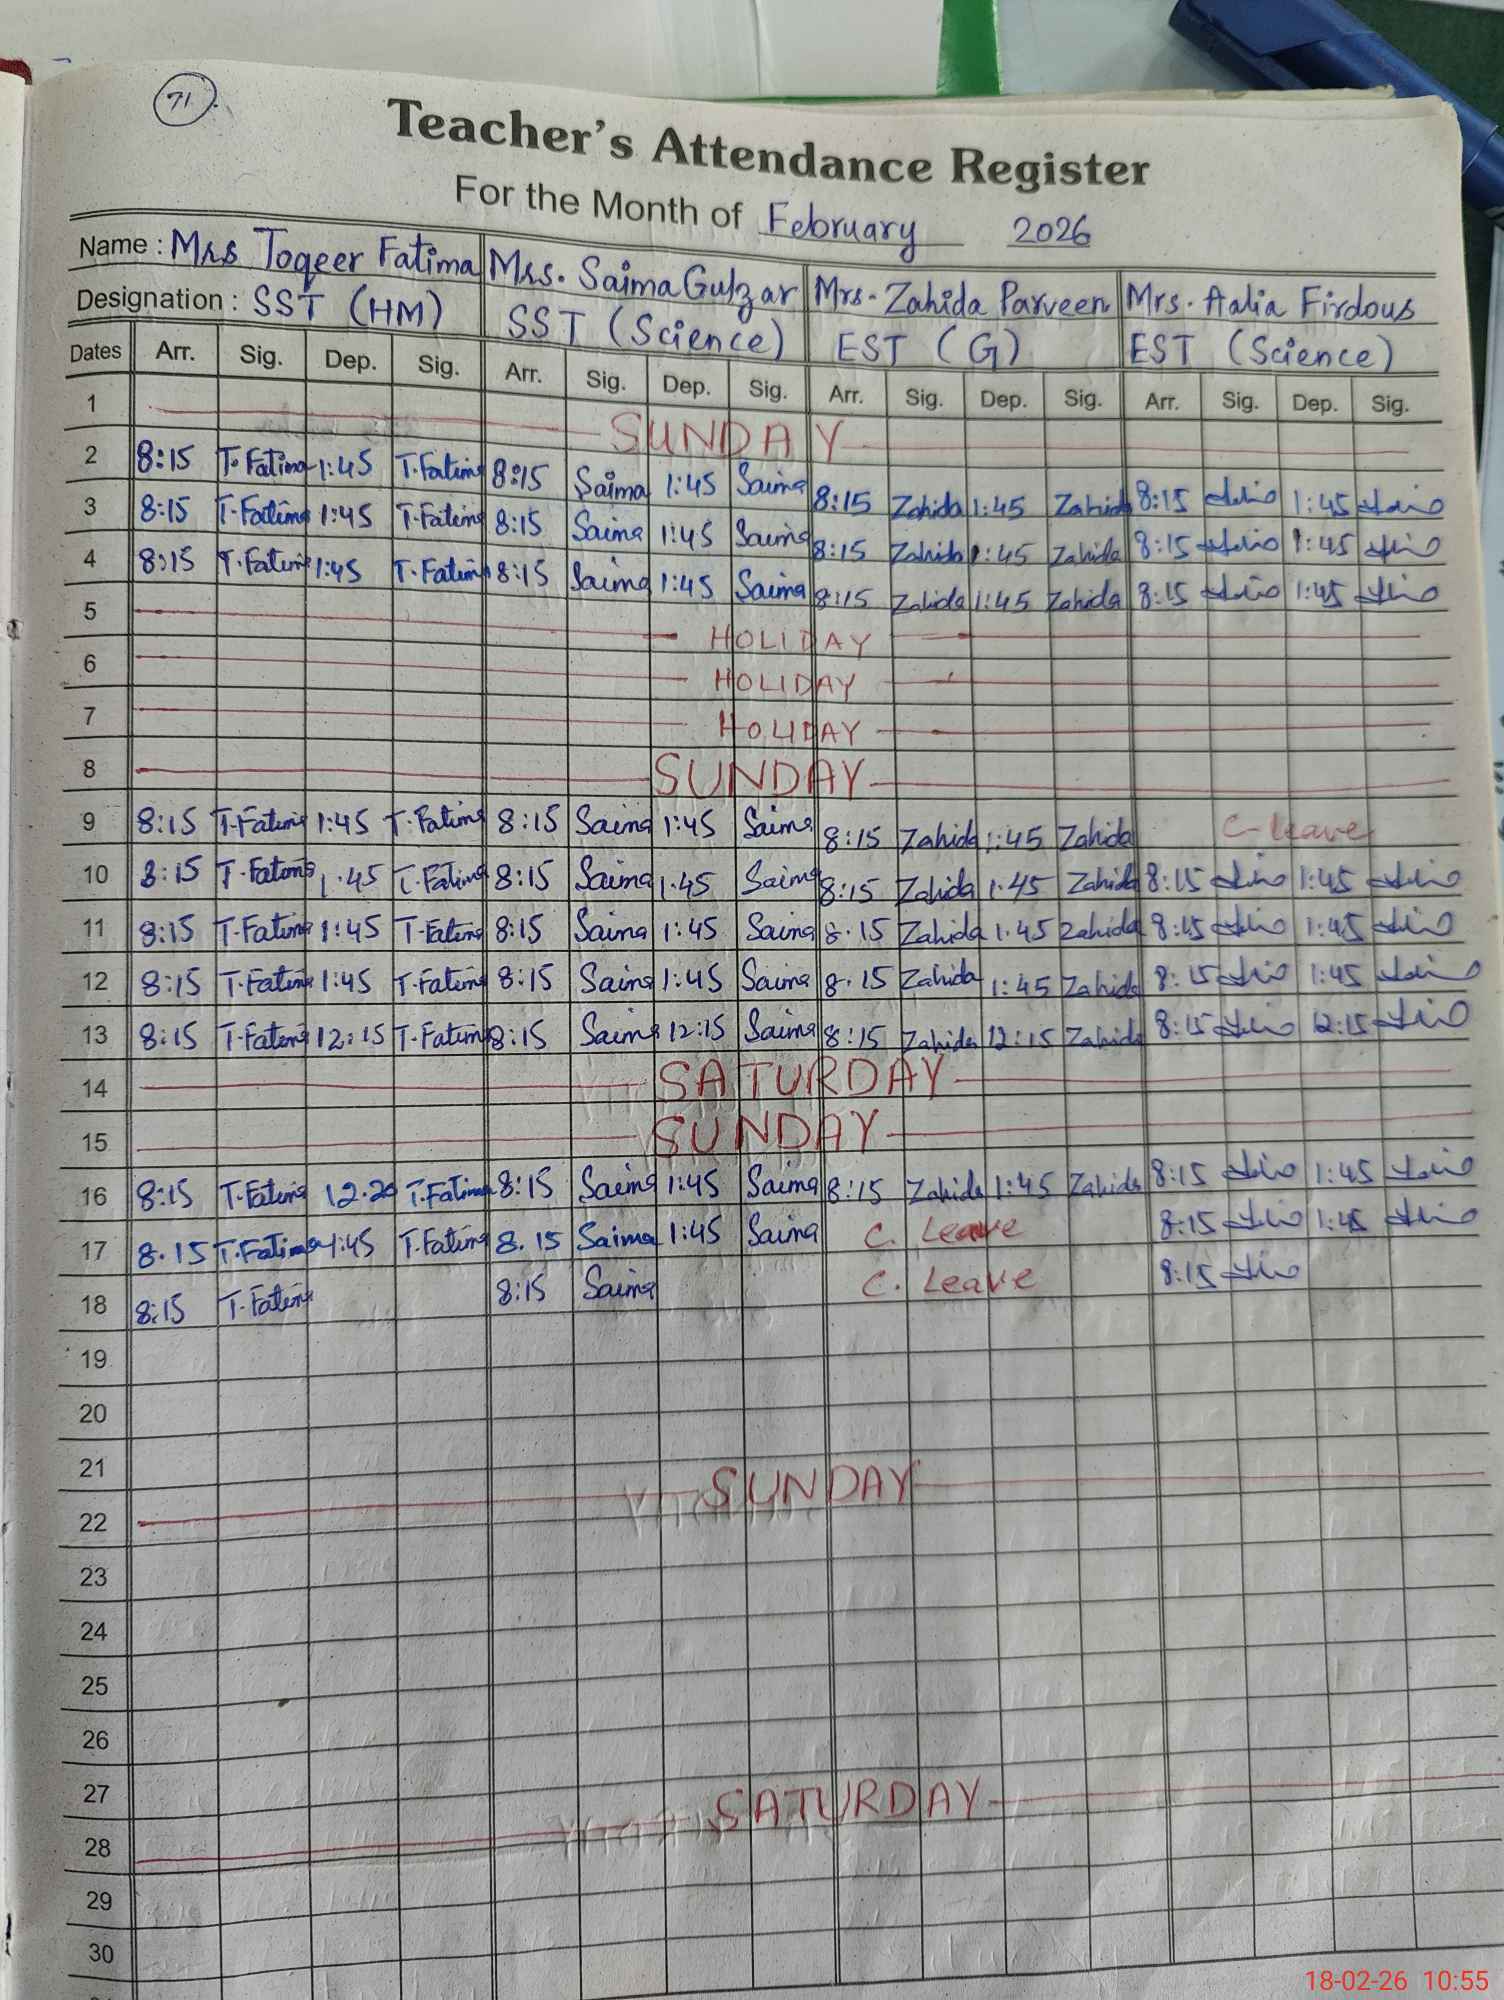 71
Teacher's Attendance Register
For the Month of February 2026
Name : Mrs Toqeer Fatima Mrs. Saima Gulzar Mrs. Zahida Parveen Mrs. Aalia Firdous
Designation : SST (HM) SST (Science) EST (G) EST (Science)
Dates Arr. Sig. Dep. Sig. Arr. Sig. Dep. Sig. Arr. Sig. Dep. Sig. Arr. Sig. Dep. Sig.
1 SUNDAY
2 8:15 T.Fatima 1:45 T.Fatima 8:15 Saima 1:45 Saima 8:15 Zahida 1:45 Zahida 8:15 1:45
3 8:15 T.Fatima 1:45 T.Fatima 8:15 Saima 1:45 Saima 8:15 Zahida 1:45 Zahida 8:15 1:45
4 8:15 T.Fatima 1:45 T.Fatima 8:15 Saima 1:45 Saima 8:15 Zahida 1:45 Zahida 8:15 1:45
5 HOLIDAY
6 HOLIDAY
7 HOLIDAY
8 SUNDAY
9 8:15 T.Fatima 1:45 T.Fatima 8:15 Saima 1:45 Saima 8:15 Zahida 1:45 Zahida C-leave
10 8:15 T.Fatima 1.45 T.Fatima 8:15 Saima 1:45 Saima 8:15 Zahida 1.45 Zahida 8:15 1:45
11 8:15 T.Fatima 1:45 T.Fatima 8:15 Saima 1:45 Saima 8.15 Zahida 1.45 Zahida 8:15 1:45
12 8:15 T.Fatima 1:45 T.Fatima 8:15 Saima 1:45 Saima 8.15 Zahida 1:45 Zahida 8:15 1:45
13 8:15 T.Fatima 12:15 T.Fatima 8:15 Saima 12:15 Saima 8:15 Zahida 12:15 Zahida 8:15 12:15
14 SATURDAY
15 SUNDAY
16 8:15 T.Fatima 12.20 T.Fatima 8:15 Saima 1:45 Saima 8:15 Zahida 1:45 Zahida 8:15 1:45
17 8.15 T.Fatima 1:45 T.Fatima 8.15 Saima 1:45 Saima C. Leave 8:15 1:45
18 8:15 T.Fatima 8:15 Saima C. Leave 8:15
19
20
21
22 SUNDAY
23
24
25
26
27
28 SATURDAY
29
30
18-02-26 10:55